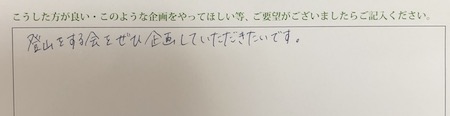 こうした方が良い・このような企画をやってほしい等、ご要望がございましたらご記入ください。
登山をする会をぜひ企画していただきたいです。